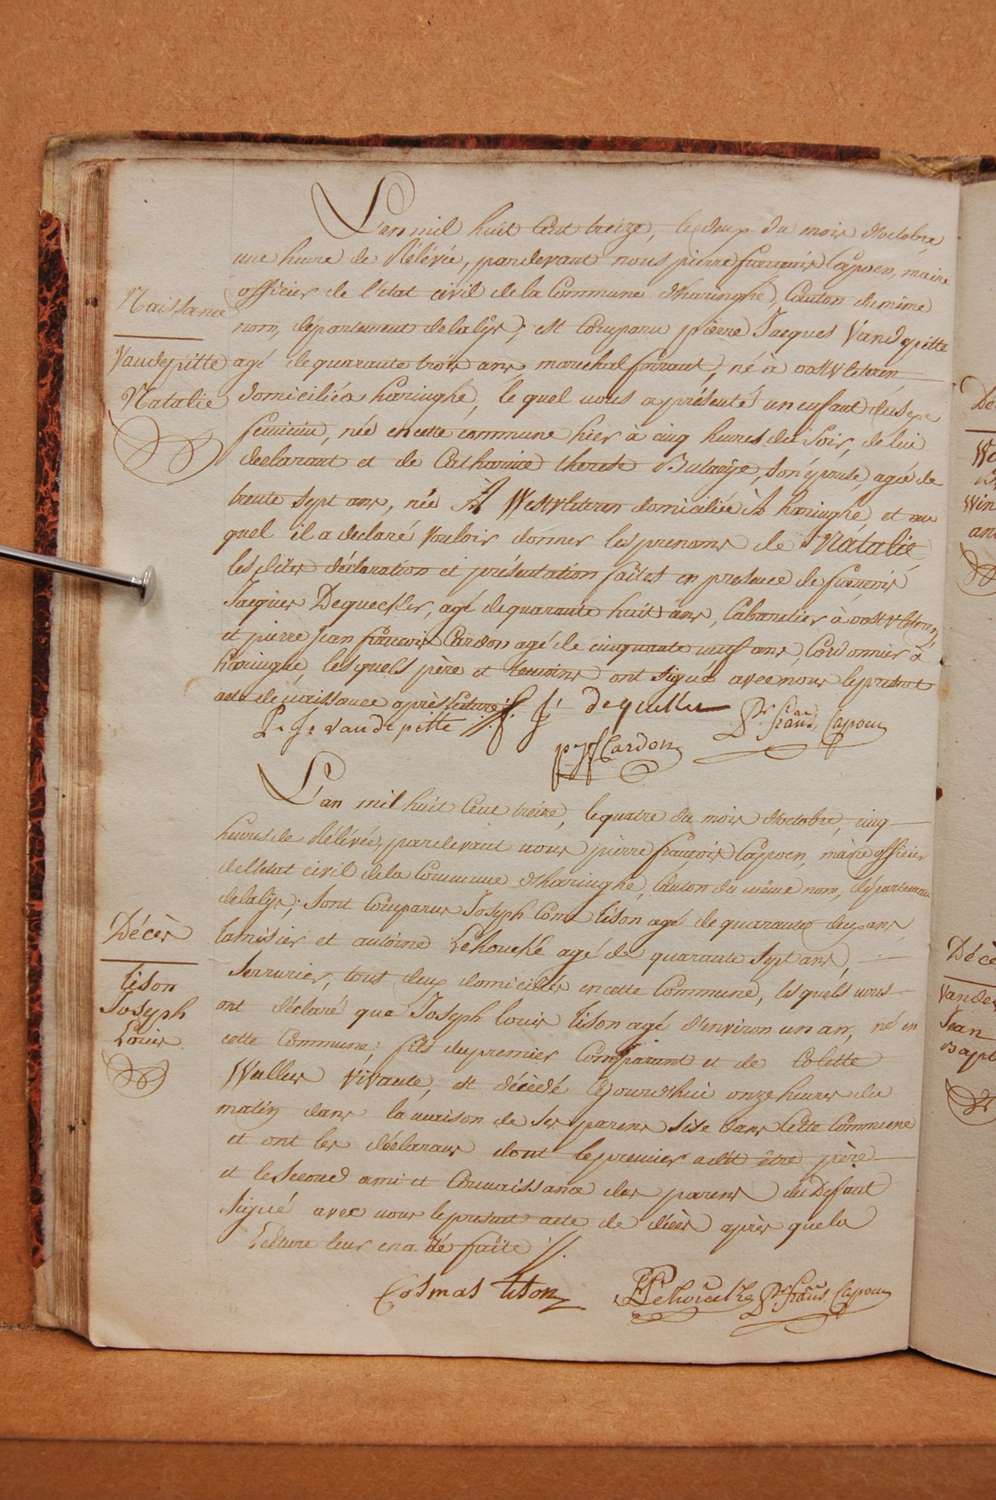 L'an mil huit Cent treize, le deux du mois d'octobre,
une heure de Rélévée, pardevant nous pierre françois Capoen, maire
officier de l'état civil de la Commune d'haringhe, Canton du même
nom, département de la lÿs, est Comparu pierre Jacques Vandepitte
agé de quarante trois ans maréchal férrant, né à oostvleteren
domicilié à haringhe, le quel nous a présenté un enfant du sexe
feminin, née en cette commune hier à cinq heures du soir, de lui
declarant et de Catharine therese Butaeÿe, son épouse, agée de
trente sept ans, née À Westvleteren domiciliée à haringhe et au
quel il a declaré vouloir donner les prenoms de Natalie
les dites déclaration et présentation faites en présence de françois
Jacques Dequeckler, agé de quarante huit ans, Cabaretier à oostvleteren,
et pierre jean françois Cardon agé de cinquante neuf ans, Cordonnier à
haringhe, lesquels père et temoins ont signé avec nous le présent
acte de naissance après lecture
Naissance
Vandepitte
Natalie
P. J. Vandepitte f. J. dequekler Pr. frans Capoen
p. j. f. Cardon
L'an mil huit Cent treize, le quatre du mois d'octobre, cinq
heures de Rélévée, pardevant nous pierre françois Capoen, maire officier
de l'état civil de la Commune d'haringhe, Canton du même nom, département
de la lÿs, sont Comparus Joseph Come tison agé de quarante deux ans
tamisier et antoine Lehoucke agé de quarante sept ans,
serrurier, tout deux domiciliés en cette Commune, lesquels nous
ont declaré que Joseph louis tison agé d'environ un an, né en
cette Commune, fils du premier Comparant et de Colette
Walles vivante, est décédé cejourd'hui onze heures du
matin dans la maison de ses parens sise dans Cette Commune
et ont les déclarans dont le premier a dit être père
et le second ami et Connaissance des parens du Defunt
signé avec nous le présent acte de décès après que la
Lecture leur en a été faite
Décès
tison
Joseph
Louis
Cosmas tison Lehoucke Pr. frans Capoen
Dé
Wa
Win
an
Décè
Vande
Jean
Bapt